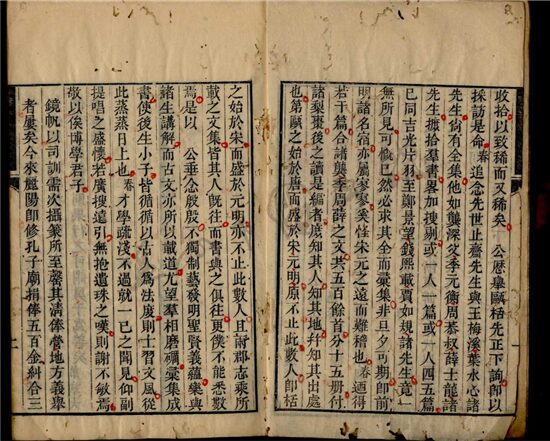 收拾以致稀而又稀矣 公歷臯甌栝先正下詢即以
採訪是命春追念先世止齋先生與王梅溪葉水心諸
先生尚有全集他如龔深父李元衡周恭叔薛士龍諸
先生摭拾羣書畧加搜剔或一人一篇或一人四五篇
已同吉光片羽至鄭景望錢熙載賈如規諸先生竟
無所見可慨已然必求其全而彙集非旦夕可期即前
明諸名宿亦屬寥寥奚怪宋元之遠而難稽也春迺得
若干篇合諸龔季周薛之文共五百餘首分十五册付
諸梨棗後之讀是編者庶知其人知其地幷知其出處
也第甌之始於唐而盛於宋元明原不止此數人即栝
之始於宋而盛於元明亦不止此數人且附郡志乘所
載之文集皆其人旣往而書與之俱往更僕不能悉數
焉是以 公垂念殷殷不獨制藝發明聖賢義蘊樂與
諸生講解而古文亦所以載道尤望羣相磨礪彙集成
書使後生小子皆循循以古人爲法度則士習文風從
此蒸蒸日上也春才學疏淺不過就一己之聞見仰副
提唱之盛懷若廣搜遠引無抱遺珠之嘆則謝不敏焉
敬以俟博學君子
鏡帆以司訓需次攝篆所至罄其清俸營地方義舉
者屢矣今來麗陽即修孔子廟捐俸五百金糾合三